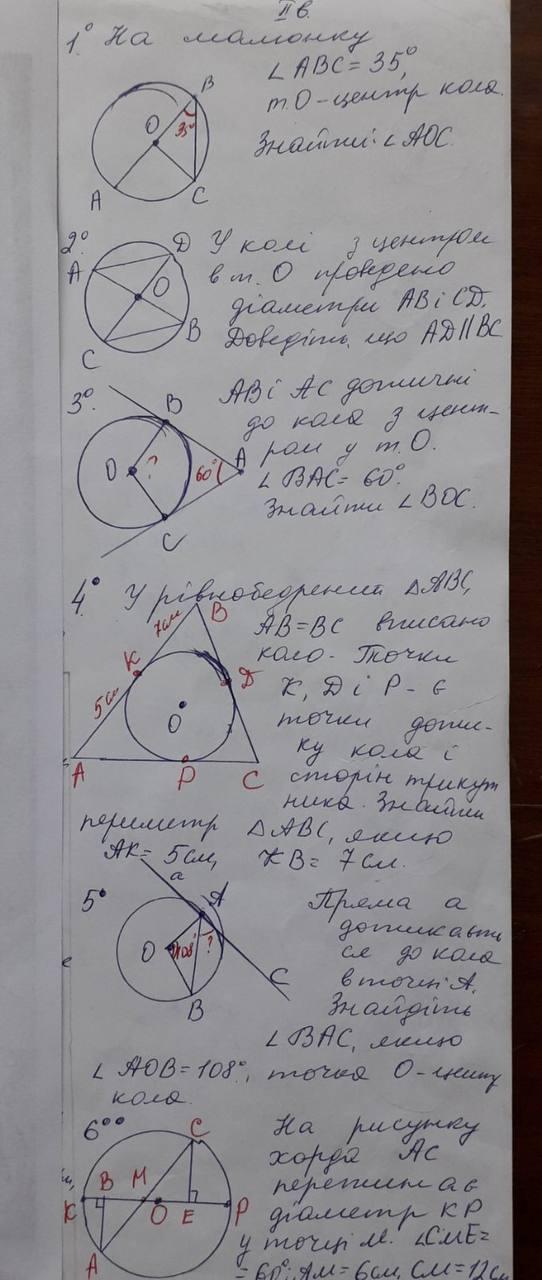 II в.
1° На малюнку
∠ABC = 35°,
т.О - центр кола.
Знайти: ∠AOC.
B
O
35°
A
C
2° У колі з центром
в т. О проведено
діаметри AB і CD.
Доведіть, що AD||BC
D
A
O
B
C
3°. AB і AC дотичні
до кола з цент-
ром у т.О.
∠BAC = 60°.
Знайти ∠BOC.
B
A
O
?
60°
C
4° У рівнобедрений △ABC,
AB=BC вписано
коло. Точки
K, D і P - є
точки доти-
ку кола і
сторін трикут
ника. Знайти
периметр △ABC, якщо
AK = 5см, KB = 7см.
7см
B
K
5см
D
O
A
P
C
5° Пряма a
дотикаєть
ся до кола
в точці A.
Знайдіть
∠BAC, якщо
∠AOB=108°, точка O - центр
кола.
a
A
O
108°
?
B
C
6°° На рисунку
хорда AC
перетинає
діаметр KP
у точці M. ∠CME=
= 60°; AM = 6см, CM = 12см
C
K
B
M
O
E
P
A